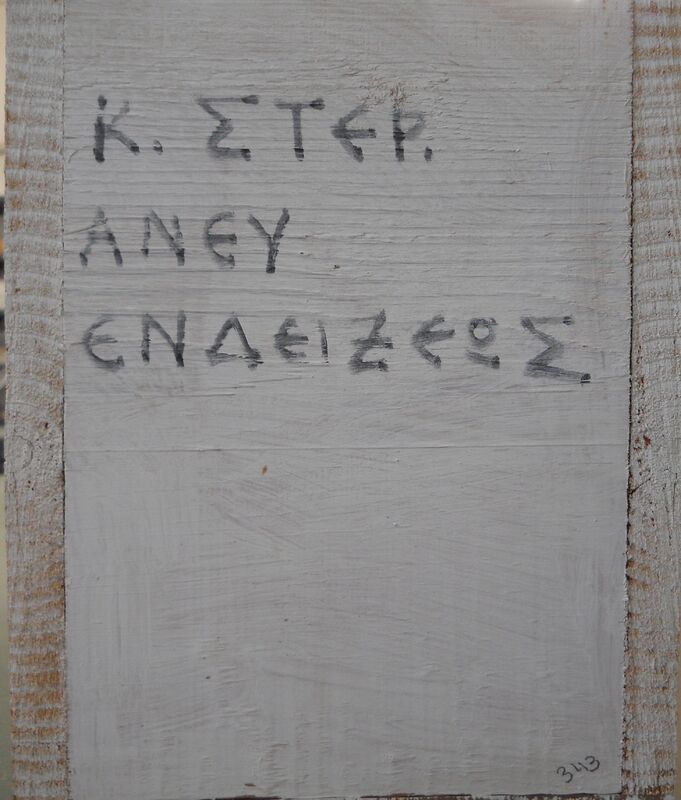 Κ. ΣΤΕΡ.
ΑΝΕΥ
ΕΝΔΕΙΞΕΩΣ
343